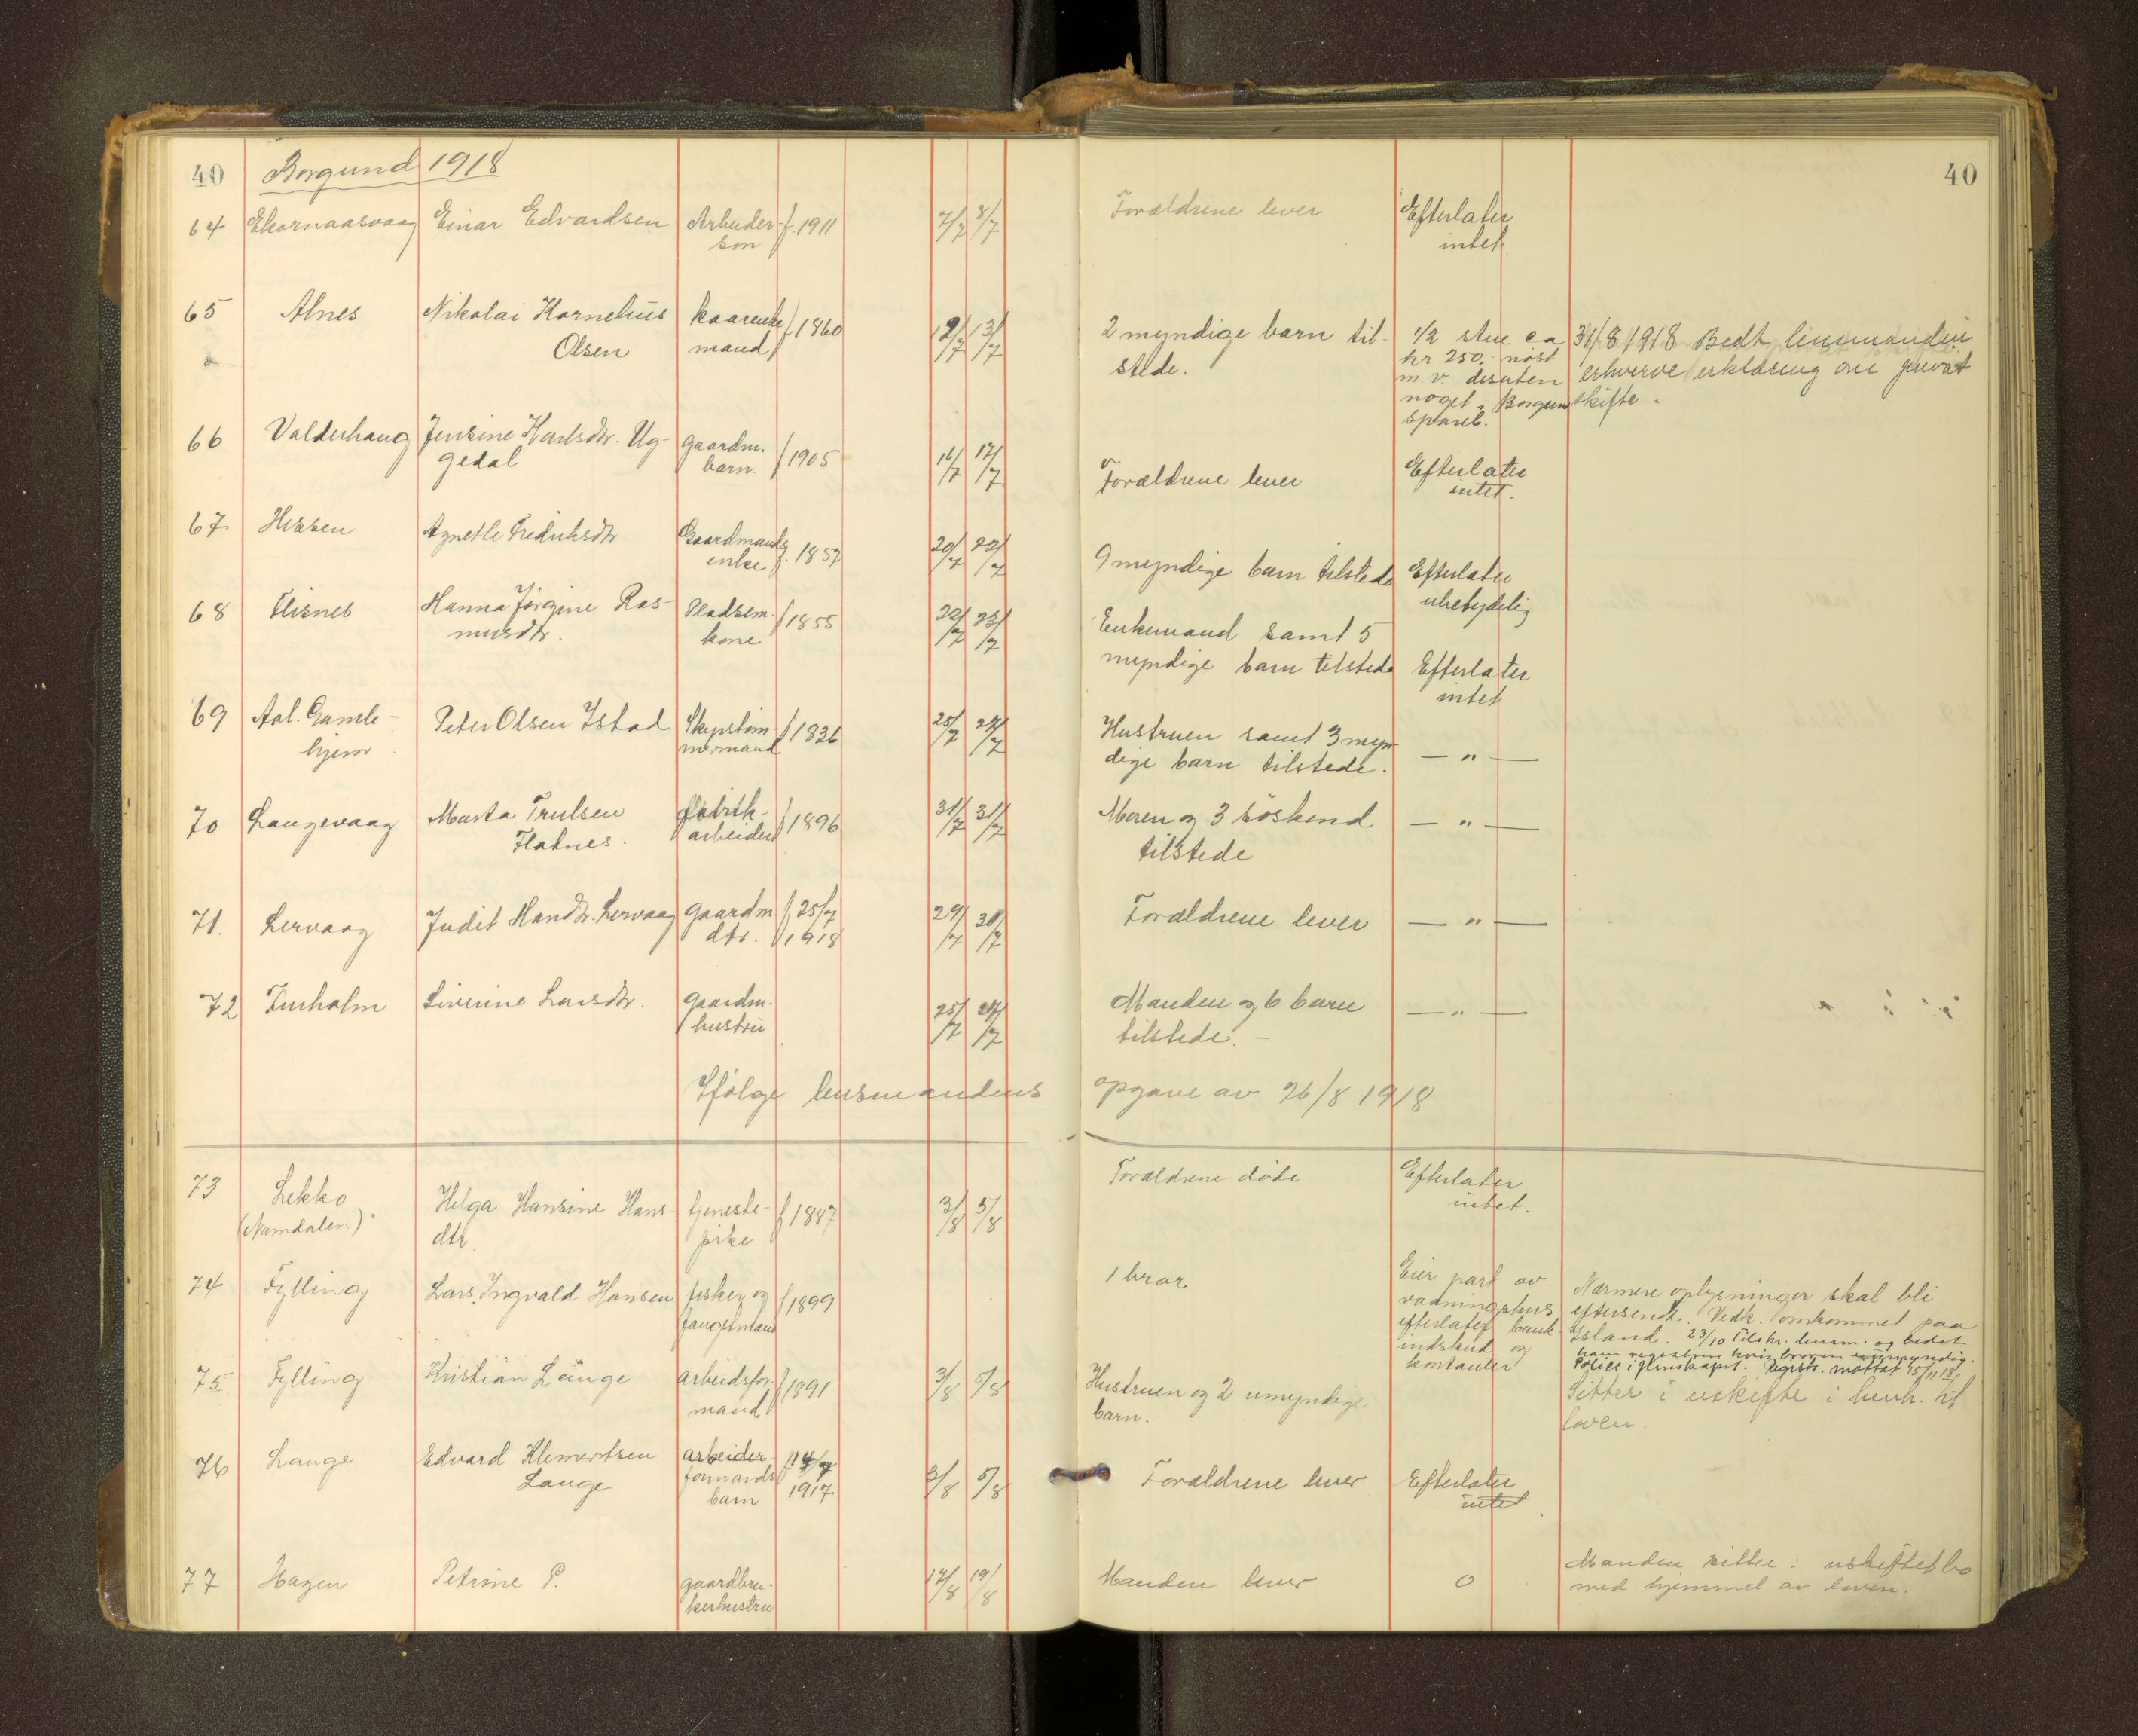 40 Borgund 1918 40
64 Ekornaasvaag Einar Edvardsen Arbeider- f. 1911 7/7 8/7 Forældrene lever Efterlater
søn intet
65 Alnes Nikolai Kornelius kaarenke f. 1860 12/7 13/7 2 myndige barn til- 1/2 stue ca 31/8 1918 Bedt lensmanden
Olsen mand stede. kr 250,- nøst erhverve erklæring om privat
m. v. desuten skifte.
noget i Borgund
spareb.
66 Valderhaug Jensine Karlsdtr. Ug- gaardm. f 1905 16/7 17/7 Forældrene lever Efterlater
gedal barn. intet.
67 Hessen Agnethe Fredriksdtr. Gaardmands f. 1857 20/7 22/7 9 myndige barn tilstede Efterlater
enke ubetydelig
68 Flisnes Hanna Jørgine Ras- Pladsem. f 1855 22/7 23/7 Enkemand samt 5
musdtr. kone myndige barn tilstede Efterlater
intet
69 Aal. Gamle- Peter Olsen Ystad Skipstøm- f 1836 25/7 27/7 Hustruen samt 3 myn-
hjem mermand dige barn tilstede. — " —
70 Langevaag Marta Trulsen fabrik- f 1896 31/7 31/7 Moren og 3 søskend — " —
Flatnes. arbeider tilstede
71. Lervaag Judit Hansdtr. Lervaag gaardm f 25/7 29/7 30/7 Forældrene lever — " —
dtr. 1918
72 Furholm Siverine Larsdtr. gaardm. 25/7 27/7 Manden og 6 barn — " —
hustru tilstede. —
Ifølge lensmandens opgave av 26/8 1918
73 Lekko Helga Hansine Hans- tjeneste- f 1887 3/8 5/8 Forældrene døde Efterlater
(Namdalen) dtr. pike intet.
74 Fylling Lars Ingvald Hansen fisker og f 1899 1 bror Eier part av Nærmere oplysninger skal bli
fangstmand vaaningshus eftersendt. Vedk. omkommet paa
efterlater bank- Island. 23/10 Tilskr. lensm. og bedet
indskud og ham registrere hvis broren er umyndig.
kontanter Police i jernskapet. Registr. mottat 15/11 18.
75 Fylling Kristian Lange arbeidsfor- f 1891 3/8 5/8 Hustruen og 2 umyndige Sitter i uskifte i henh. til
mand barn. loven.
76 Lange Edvard Klementsen arbeider- f 14/7 3/8 5/8 Forældrene lever Efterlater
Lange formands 1917 intet
barn
77 Hagen Petrine P. gaardbru- 17/8 19/8 Manden lever 0 Manden sitter i uskiftet bo
kerhustru med hjemmel av loven.